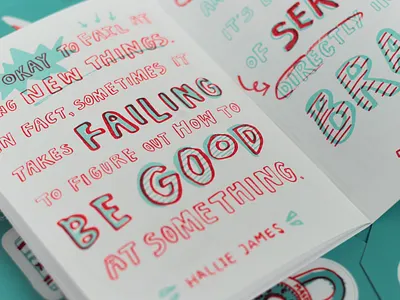 OKAY TO FAIL AT
NEW THINGS.
IN FACT, SOMETIMES IT
TAKES FAILING
TO FIGURE OUT HOW TO
BE GOOD
AT SOMETHING.
HALLIE JAMES
OF
DIRECTLY